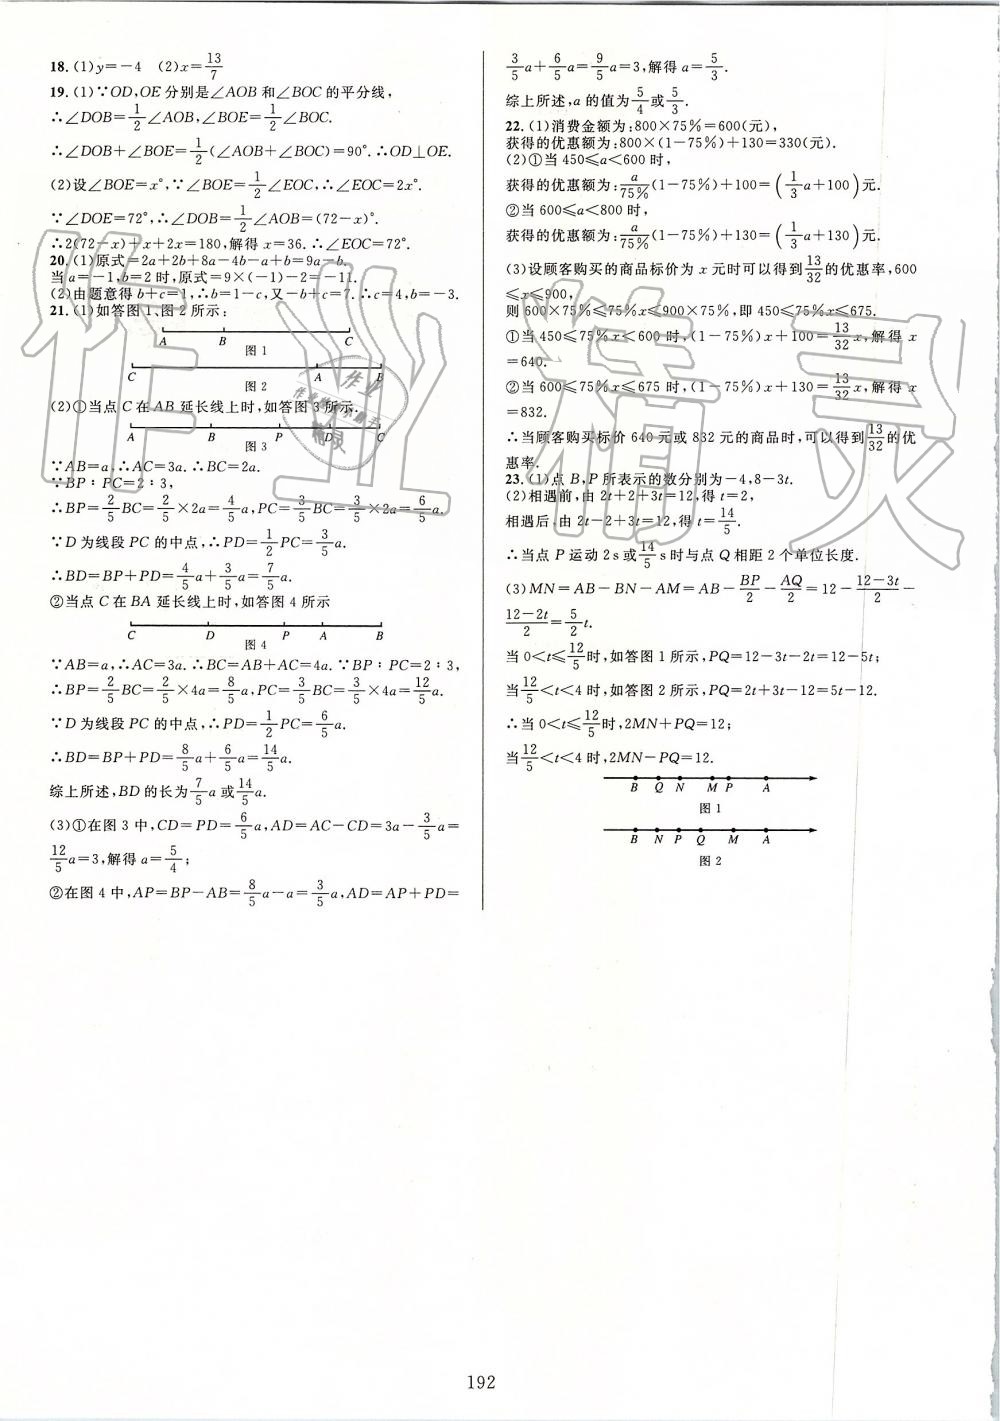 18.(1)y=-4  (2)x=13/7
19.(1)∵OD,OE分别是∠AOB和∠BOC的平分线,
∴∠DOB=1/2∠AOB,∠BOE=1/2∠BOC.
∴∠DOB+∠BOE=1/2(∠AOB+∠BOC)=90°.∴OD⊥OE.
(2)设∠BOE=x°,∵∠BOE=1/2∠EOC,∴∠EOC=2x°.
∵∠DOE=72°,∴∠DOB=1/2∠AOB=(72-x)°.
∴2(72-x)+x+2x=180,解得x=36.∴∠EOC=72°.
20.(1)原式=2a+2b+8a-4b-a+b=9a-b.
当a=-1,b=2时,原式=9×(-1)-2=-11.
(2)由题意得b+c=1,∴b=1-c,又-b+c=7.∴c=4,b=-3.
21.(1)如答图1、图2所示:
A B C
图1
C A B
图2
(2)①当点C在AB延长线上时,如答图3所示.
A B P D C
图3
∵AB=a,∴AC=3a.∴BC=2a.
∵BP∶PC=2∶3,
∴BP=2/5BC=2/5×2a=4/5a,PC=3/5BC=3/5×2a=6/5a.
∵D为线段PC的中点,∴PD=1/2PC=3/5a.
∴BD=BP+PD=4/5a+3/5a=7/5a.
②当点C在BA延长线上时,如答图4所示
C D P A B
图4
∵AB=a,∴AC=3a.∴BC=AB+AC=4a.∵BP∶PC=2∶3,
∴BP=2/5BC=2/5×4a=8/5a,PC=3/5BC=3/5×4a=12/5a.
∵D为线段PC的中点,∴PD=1/2PC=6/5a.
∴BD=BP+PD=8/5a+6/5a=14/5a.
综上所述,BD的长为7/5a或14/5a.
(3)①在图3中,CD=PD=6/5a,AD=AC-CD=3a-3/5a=
12/5a=3,解得a=5/4;
②在图4中,AP=BP-AB=8/5a-a=3/5a,AD=AP+PD=
3/5a+6/5a=9/5a=3,解得a=5/3.
综上所述,a的值为5/4或5/3.
22.(1)消费金额为:800×75%=600(元),
获得的优惠额为:800×(1-75%)+130=330(元).
(2)①当450≤a<600时,
获得的优惠额为:a/75%(1-75%)+100=(1/3a+100)元.
②当600≤a<800时,
获得的优惠额为:a/75%(1-75%)+130=(1/3a+130)元.
(3)设顾客购买的商品标价为x元时可以得到13/32的优惠率,600
≤x≤900,
则600×75%≤75%x≤900×75%,即450≤75%x≤675.
①当450≤75%x<600时,(1-75%)x+100=13/32x,解得x
=640.
②当600≤75%x≤675时,(1-75%)x+130=13/32x,解得x
=832.
∴当顾客购买标价640元或832元的商品时,可以得到13/32的优
惠率.
23.(1)点B,P所表示的数分别为-4,8-3t.
(2)相遇前,由2t+2+3t=12,得t=2,
相遇后,由2t-2+3t=12,得t=14/5.
∴当点P运动2s或14/5s时与点Q相距2个单位长度.
(3)MN=AB-BN-AM=AB-BP/2-AQ/2=12-(12-3t)/2-
(12-2t)/2=5/2t.
当0<t≤12/5时,如答图1所示,PQ=12-3t-2t=12-5t;
当12/5<t<4时,如答图2所示,PQ=2t+3t-12=5t-12.
∴当0<t≤12/5时,2MN+PQ=12;
当12/5<t<4时,2MN-PQ=12.
B Q N M P A
图1
B N P Q M A
图2
192
作业精灵